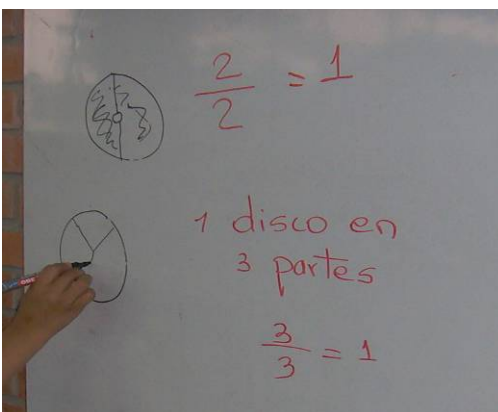 2/2 = 1
1 disco en
3 partes
3/3 = 1